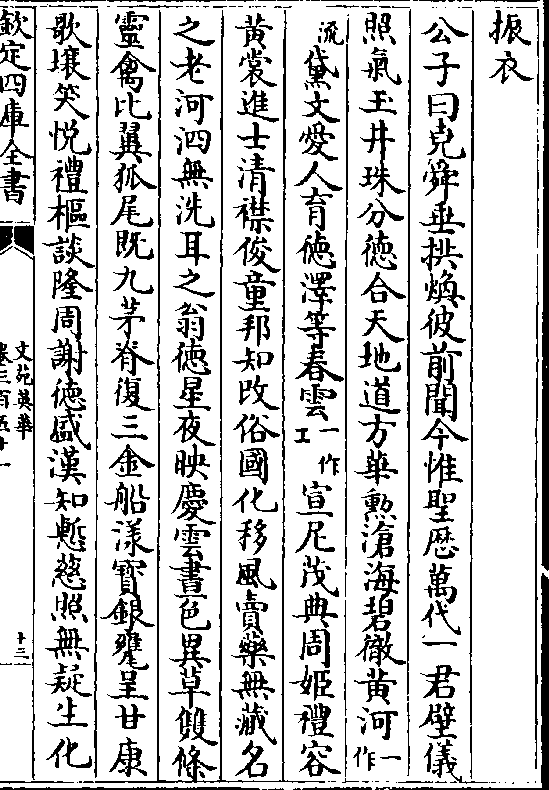 振衣
公子曰堯舜垂拱煥彼前聞今惟聖厯萬代一君壁儀
照氣玉井珠分徳合天地道方華勲滄海碧徹黄河一作
流黛文愛人育徳澤等春雲一作工宣尼茂典周姬禮容
黄裳進士清襟俊童邦知改俗國化移風賣藥無藏名
之老河泗無洗耳之翁徳星夜映慶雲晝色異草雙條
靈禽比翼狐尾既九茅脊復三金船漾寳銀甕呈甘康
歌壌笑悦禮樞談隆周謝徳盛漢知慙慈照無疑生化
欽定四庫全書
文苑英華
卷三百五十一
十三